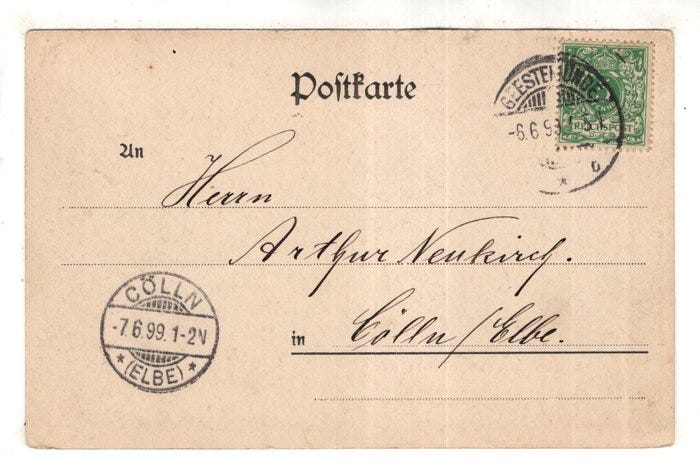 Postkarte
GEESTEMÜNDE
-6.6.99.
REICHSPOST
An
Herrn
Arthur Neukirch.
in Cölln/Elbe.
CÖLLN
-7.6.99.1-2N
* (ELBE) *